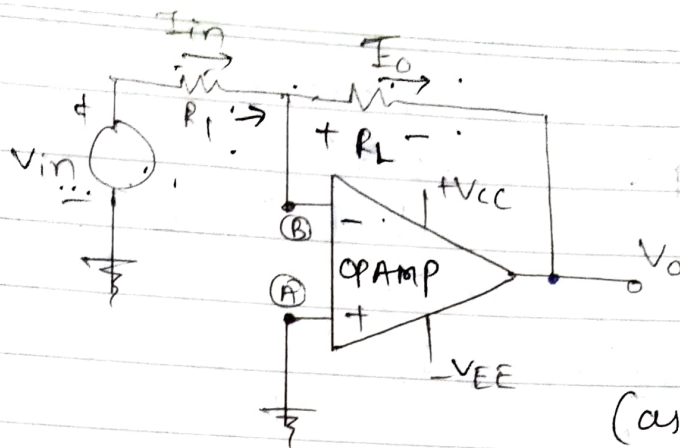 Iin
Io
+
R1
+ RL -
Vin
+Vcc
B
-
OPAMP
Vo
A
+
-VEE
(as